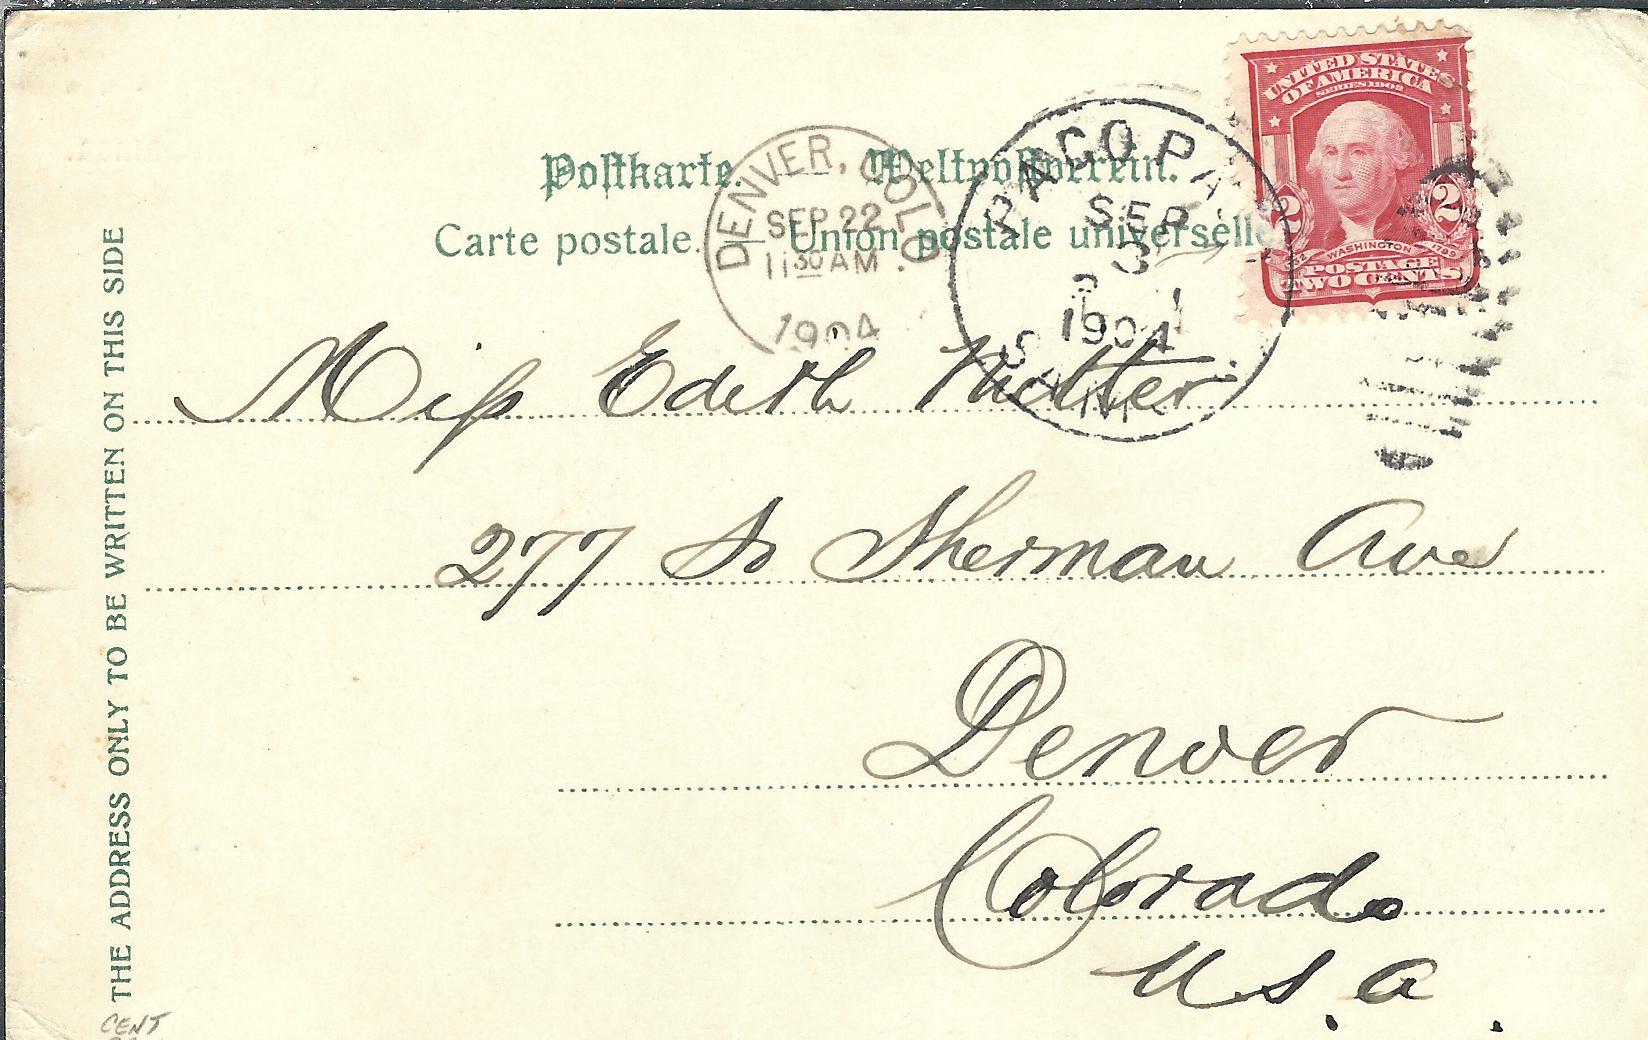 UNITED STATES
OF AMERICA
SERIES 1902
2 2
WASHINGTON
1799
POSTAGE
TWO CENTS
Postkarte. — Weltpostverein.
Carte postale. — Union postale universelle
DENVER, COLO.
SEP 22
11 30 AM
1904
PAGO PA
SEP
3
1904
SAM
Miss Edith
277 So Sherman Ave
Denver
Colorado
U.S.A
THE ADDRESS ONLY TO BE WRITTEN ON THIS SIDE
CENT